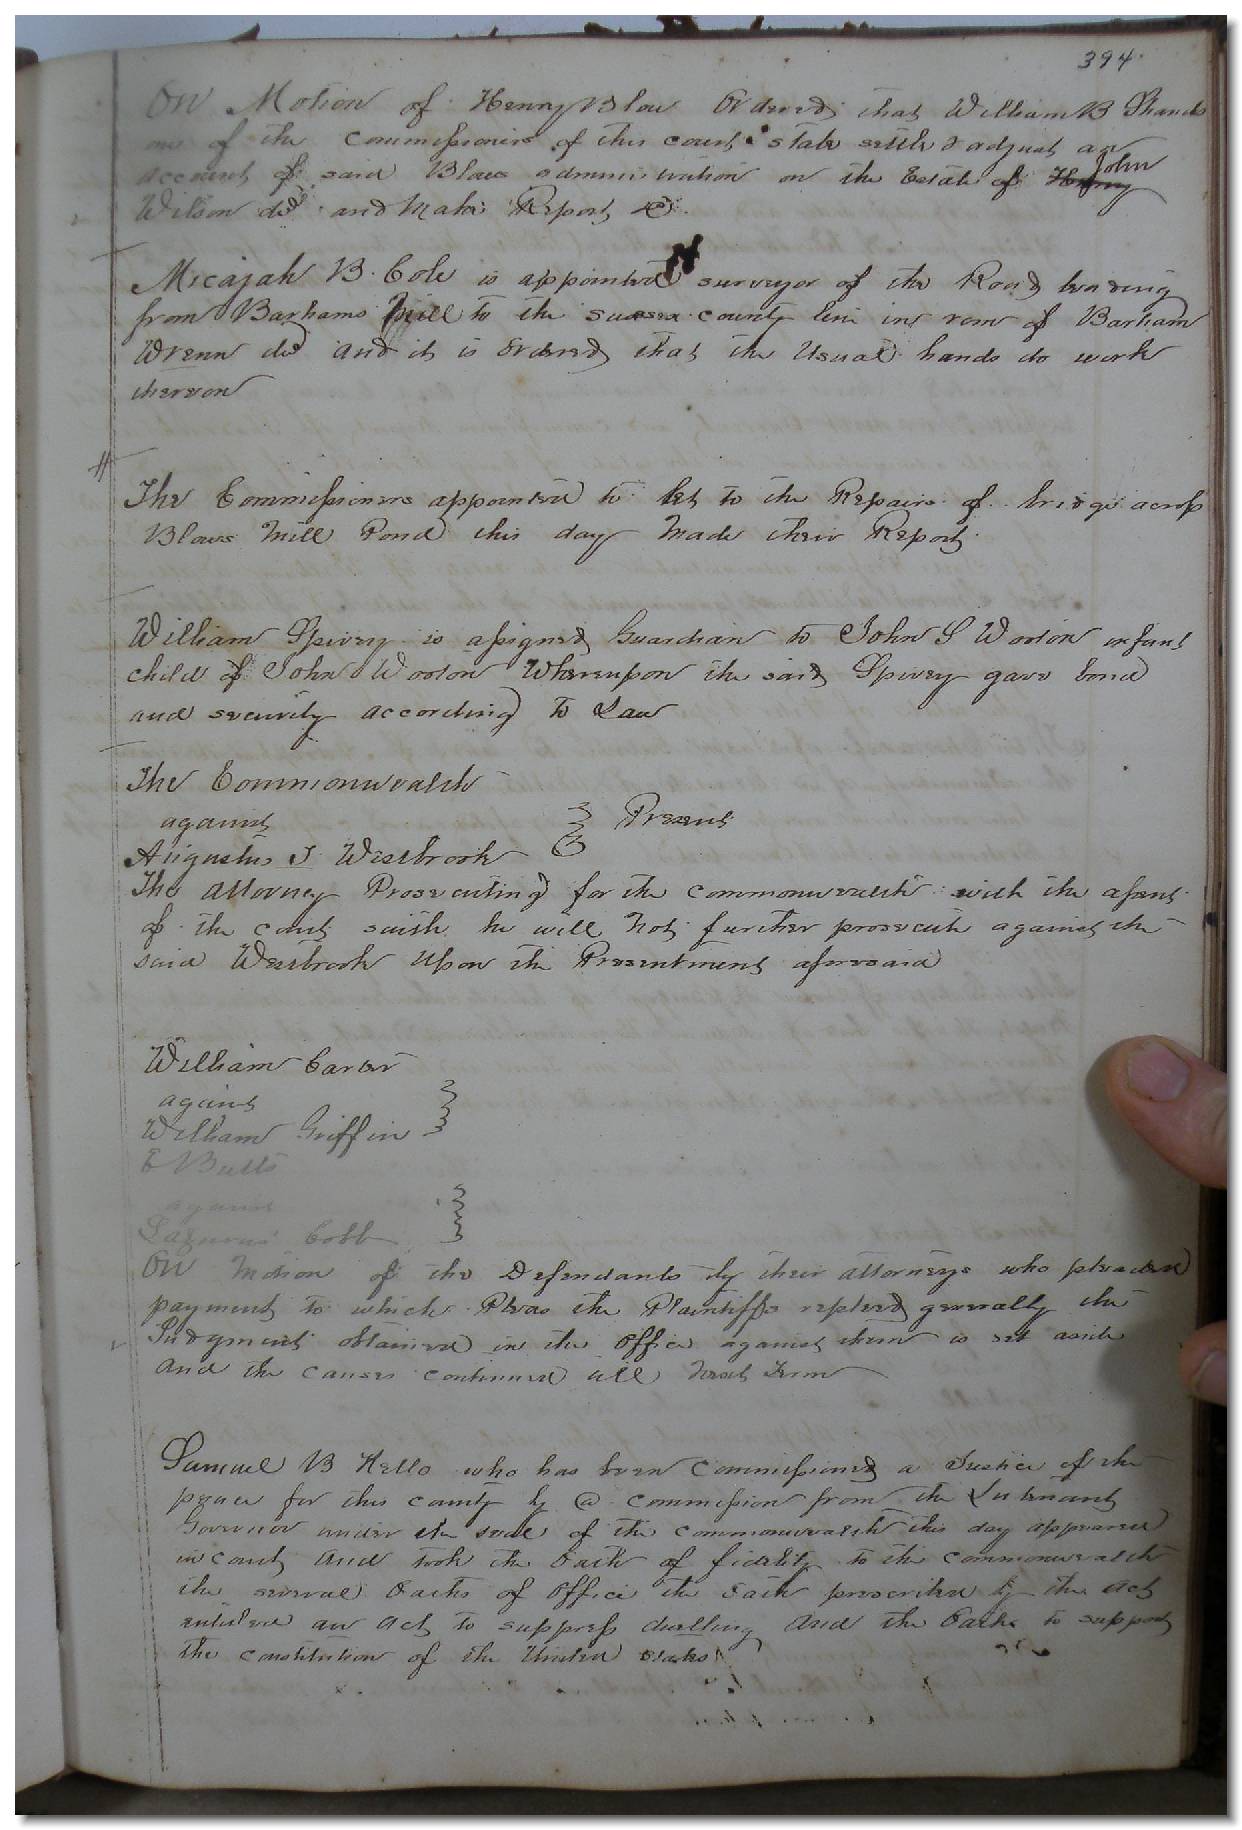 394
On Motion of Henry Blow Ordered that William B Shands
one of the commissioners of this court state settle & adjust an
account of said Blows administration on the Estate of Henry John
Wilson decd. and Make Report &c.
Micajah B. Cole is appointed surveyor of the Road leading
from Barhams Mill to the sussex county line in room of Barham
Wrenn decd and it is Ordered that the Usual hands do work
thereon
The Commissioners appointed to let to the Repairs of bridge across
Blows Mill Pond this day Made their Report
William Spivey is assigned Guardian to John S Wooton infant
child of John Wooton Whereupon the said Spivey gave bond
and security according to Law
The Commonwealth
against } Present
Augustus J Westbrook
The attorney Prosecuting for the commonwealth with the assent
of the court saith he will Not further prosecute against the
said Westbrook Upon the Presentment aforesaid
William Carter
against }
William Griffin
E Butts
against }
Lazarus Cobb
On Motion of the Defendants by their attorneys who pleaded
payment to which Pleas the Plaintiffs replied generally the
Judgment obtained in the Office against them is set aside
And the causes continued till Next Term
Samuel B Hello who has been Commissioned a Justice of the
peace for this county by @ commission from the Lutenant
Governor under the seal of the commonwealth this day appeared
in court And took the Oath of fidelity to the commonwealth
the several Oaths of Office the Oath prescribed by the act
entitled an act to suppress duelling And the Oath to support
the constitution of the United States